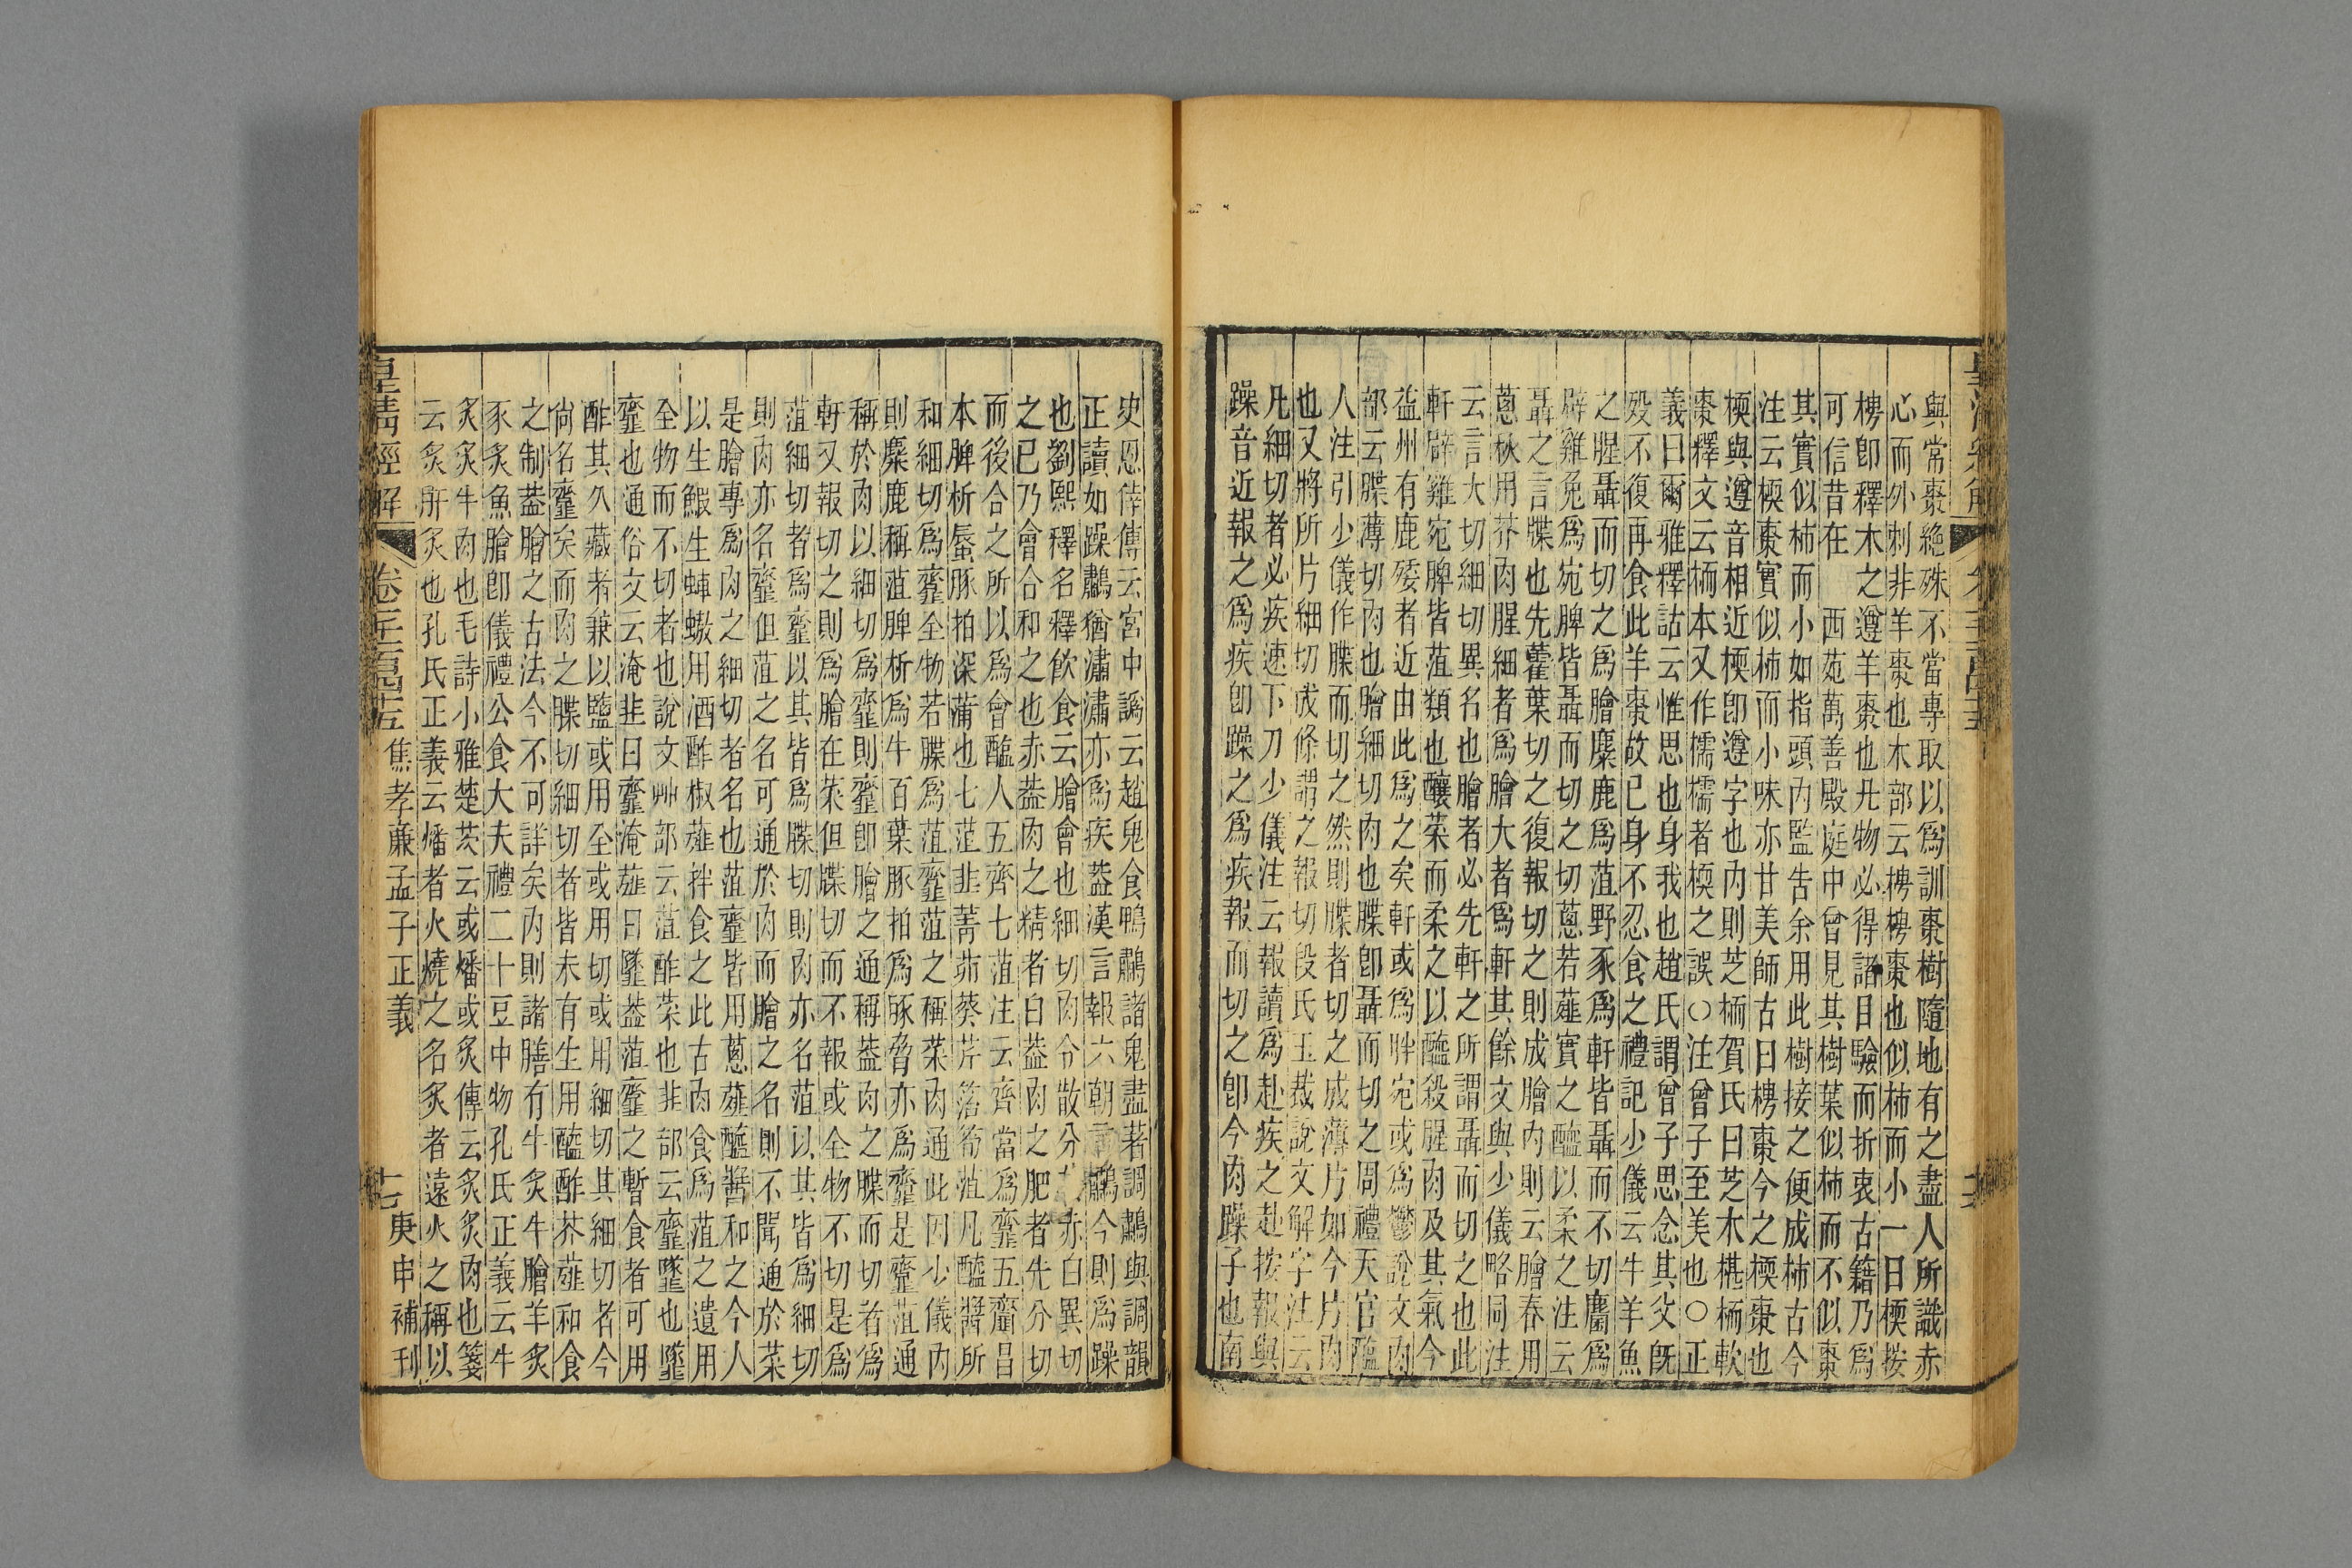 與常棗絶殊不當專取以爲訓棗樹隨地有之盡人所識赤
心而外刺非羊棗也木部云梬梬棗也似柿而小一曰㮕按
梬卽釋木之遵羊棗也凡物必得諸目驗而折衷古籍乃爲
可信昔在 西苑萬善殿庭中曾見其樹葉似柿而不似棗
其實似柿而小如指頭內監告余用此樹接之便成柿古今
注云㮕棗實似柿而小味亦甘美師古曰梬棗今之㮕棗也
㮕與遵音相近㮕卽遵字也內則芝栭賀氏曰芝木椹栭軟
棗釋文云栭本又作檽檽者㮕之誤○注曾子至美也○正
義曰爾雅釋詁云惟思也身我也趙氏謂曾子思念其父旣
歿不復再食此羊棗故已身不忍食之禮記少儀云牛羊魚
之腥聶而切之爲膾麋鹿爲菹野豕爲軒皆聶而不切麕爲
辟雞兔爲宛脾皆聶而切之切蔥若薤實之醯以柔之注云
聶之言牒也先藿葉切之復報切之則成膾內則云膾春用
蔥秋用芥肉腥細者爲膾大者爲軒其餘文與少儀略同注
云言大切細切異名也膾者必先軒之所謂聶而切之也此
軒辟雞宛脾皆菹類也釀菜而柔之以醯殺腥肉及其氣今
益州有鹿㱦者近由此爲之矣軒或爲胖宛或爲鬱說文肉
部云牒薄切肉也膾細切肉也牒卽聶而切之周禮天官醢
人注引少儀作牒而切之然則牒者切之成薄片如今片肉
也又將所片細切成條謂之報切段氏玉裁說文解字注云
凡細切者必疾速下刀少儀注云報讀爲赴疾之赴按報與
躁音近報之爲疾卽躁之爲疾報而切之卽今肉躁子也南
史恩倖傳云宮中謠云趙鬼食鴨𦠿諸鬼盡著調𦠿與調韻
正讀如躁𦠿猶瀟瀟亦爲疾蓋漢言報六朝言𦠿今則爲躁
也劉熙釋名釋飲食云膾會也細切肉令散分其赤白異切
之已乃會合和之也赤蓋肉之精者白蓋肉之肥者先分切
而後合之所以爲會醢人五齊七菹注云齊當爲齏五齏昌
本脾析蜃豚拍深蒲也七菹韭菁茆葵芹箈筍菹凡醯醬所
和細切爲齏全物若牒爲菹齏菹之稱菜肉通此因少儀內
則麋鹿稱菹脾析爲牛百葉豚拍爲豚脅亦爲齏是齏菹通
稱於肉以細切爲齏則齏卽膾之通稱蓋肉之牒而切者爲
軒又報切之則爲膾在菜但牒切而不報或全物不切是爲
菹細切者爲齏以其皆爲牒切則肉亦名菹以其皆爲細切
則肉亦名齏但菹之名可通於肉而膾之名則不聞通於菜
是膾專爲肉之細切者名也菹齏皆用蔥薤醯醬和之今人
以生鰕生蟳蠘用酒酢椒薤拌食之此古肉食爲菹之遺用
全物而不切者也說文艸部云菹酢菜也韭部云齏墬也墬
齏也通俗文云淹韭曰齏淹薤曰墬蓋菹齏之暫食者可用
酢其久藏者兼以鹽或用全或用切或用細切其細切者今
尙名齏矣而肉之牒切細切者皆未有生用醯酢芥薤和食
之制蓋膾之古法今不可詳矣內則諸膳有牛炙牛膾羊炙
豕炙魚膾卽儀禮公食大夫禮二十豆中物孔氏正義云牛
炙炙牛肉也毛詩小雅楚茨云或燔或炙傳云炙炙肉也箋
云炙肝炙也孔氏正義云燔者火燒之名炙者遠火之稱以
皇淸經解 卷千一百四十五 焦孝廉孟子正義 十七 庚申補刊